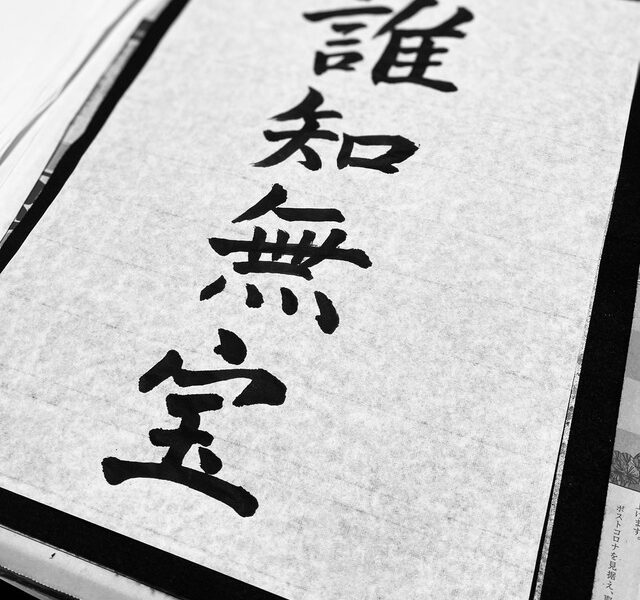 誰知無宝
上げます。
ポストコロナを見据え、